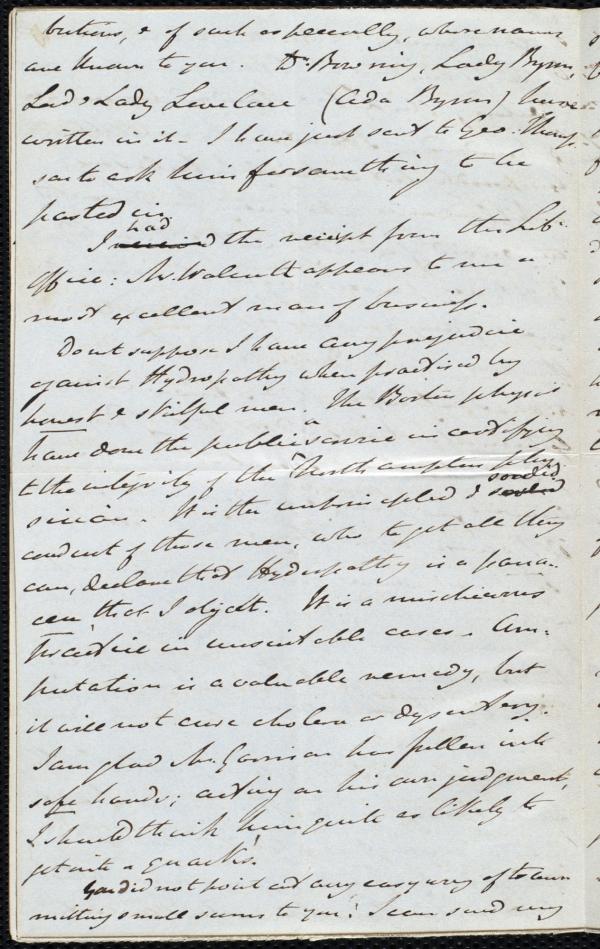 butions, & of such especially, whose names
are known to you. Dr. Bowring, Lady Byron,
Lord & Lady Lovelace (Ada Byron) have
written in it. I have just sent to Geo: Thomp-
son to ask him for something to be
pasted in.
I had the receipt from the Lib.
Office: Mr. Walcutt appears to me a
most excellent man of business.
Dont suppose I have any prejudice
against Hydropathy when practised by
honest & skilful men. The Boston physicis
have done the public a service in certifying
to the integrity of the Northampton phy-
sician. It is the unprincipled & sordid
conduct of those men, who to get all they
can, declare that Hydropathy is a pana-
cea, that I object. It is a mischievous
practice in unsuitable cases. Am-
putation is a valuable remedy, but
it will not cure cholera or dysentery.
I am glad Mr. Garrison has fallen into
safe hands; acting on his own judgment,
I should think him quite as likely to
get into a quack's.
You did not point out any easy way of
mitting small sums to you! I can send my